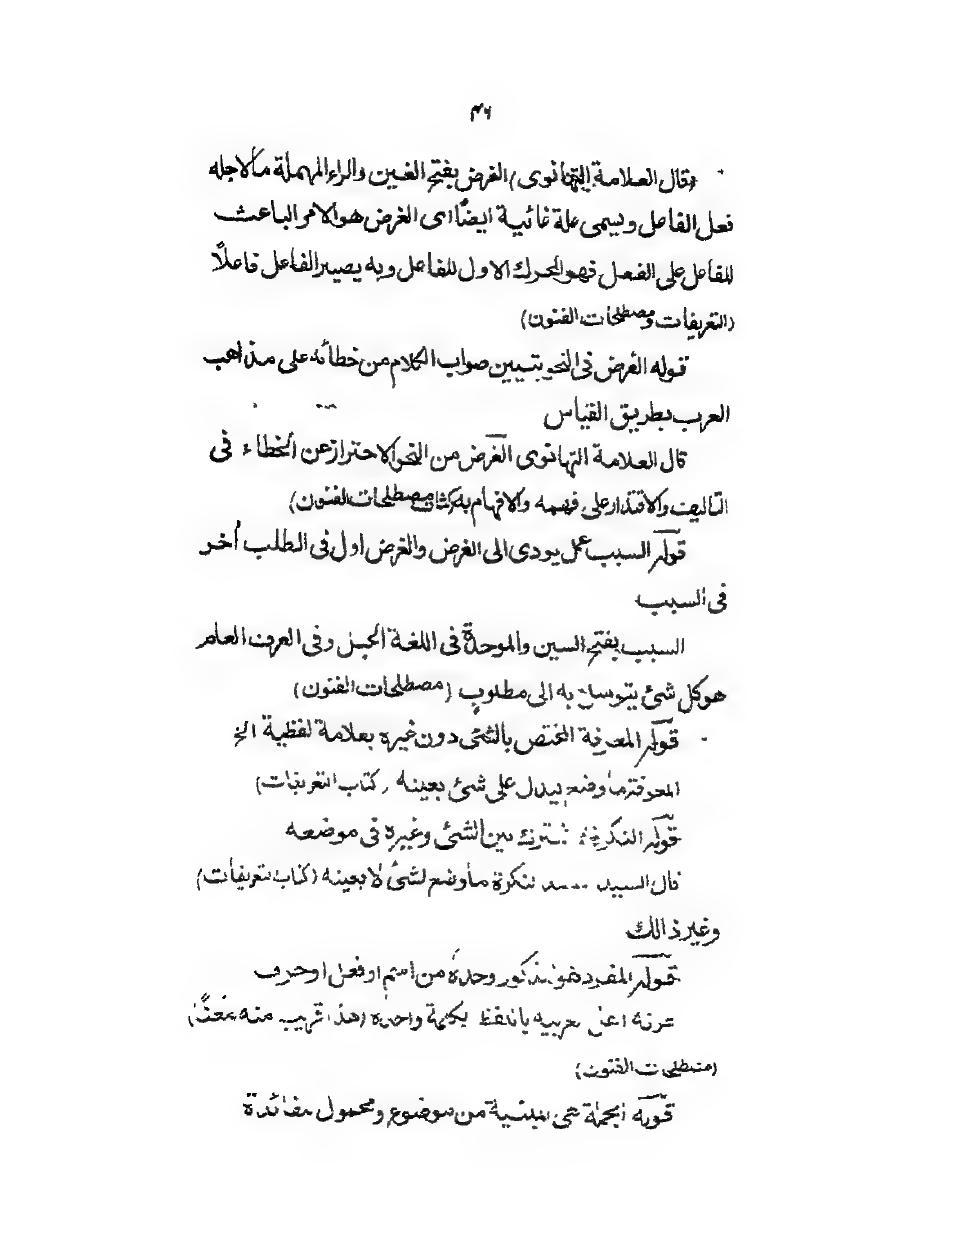 ۳۶
وقال العلامة التهانوى) الغرض بفتح الغين والراء المهملة مالاجله
فعل الفاعل ويسمى علة غائية ايضًا اى الغرض هوالامر الباعث
للفاعل على الفعل فهوالمحرك الاول للفاعل وبه يصير الفاعل فاعلاً
(التعريفات ومصطلحات الفنون)
قوله الغرض فى النحو تبيين صواب الكلام من خطائه على مذاهب
العرب بطريق القياس
قال العلامة التهانوى الغرض من النحو الاحتراز عن الخطاء فى
التاليف والاقتدار على فهمه والافهام به (كشاف مصطلحات الفنون)
قوله السبب عمل يودى الى الغرض والغرض اول فى الطلب أخر
فى السبب
السبب بفتح السين والموحدة فى اللغة الحبل وفى العرف العام
هوكل شئ يتوسل به الى مطلوب (مصطلحات الفنون)
قوله المعرفة المختص بالشئ دون غيره بعلامة لفظية الخ
المعرفة ما وضع ليدل على شئ بعينه (كتاب التعريفات)
قوله النكرة بين الشئ وغيره فى موضعه
قال السيد نكرة ما وضع لشئ لا بعينه (كتاب تعريفات)
وغير ذالك
قوله المفرد هو مذكور وحدة من اسم او فعل او حرف
بلفظ بكلمة واحدة (هذا قريب منه معنًى)
(مصطلحات الفنون)
قوله الجملة هى المبنية من موضوع ومحمول بفائدة